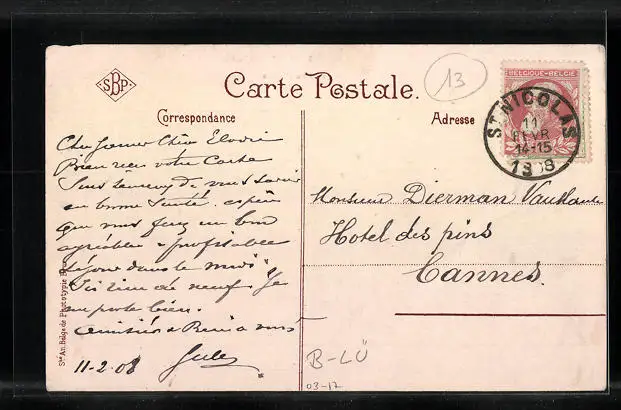 SBP
Carte Postale.
13
BELGIQUE-BELGIË
ST NICOLAS
11
FEVR
14-15
1908
Correspondance
Adresse
Bien reçu votre Carte
de vous savoir
en bonne Santé
que vous un bon
agréable & profitable
séjour dans le midi
Ici rien de neuf. Je
me porte bien.
Amitiés & à vous
Jules
11-2-08
Monsieur Dierman
Hotel des pins
Cannes.
Sté An. Belge de Phototypie
B-LÜ
03-17